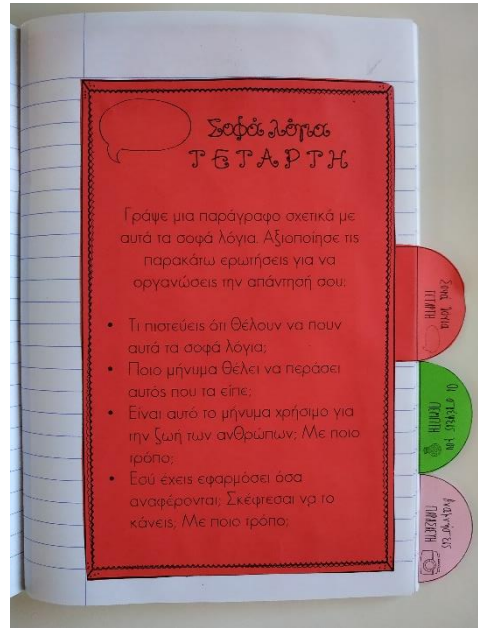 Σοφά λόγια
ΤΕΤΑΡΤΗ
Γράψε μια παράγραφο σχετικά με
αυτά τα σοφά λόγια. Αξιοποίησε τις
παρακάτω ερωτήσεις για να
οργανώσεις την απάντησή σου:
• Τι πιστεύεις ότι θέλουν να πουν
αυτά τα σοφά λόγια;
• Ποιο μήνυμα θέλει να περάσει
αυτός που τα είπε;
• Είναι αυτό το μήνυμα χρήσιμο για
την ζωή των ανθρώπων; Με ποιο
τρόπο;
• Εσύ έχεις εφαρμόσει όσα
αναφέρονται; Σκέφτεσαι να το
κάνεις; Με ποιο τρόπο;
Σοφά λόγια
ΤΕΤΑΡΤΗ
Οι σκέψεις μου
ΠΕΜΠΤΗ
Αναμνήσεις
ΠΑΡΑΣΚΕΥΗ